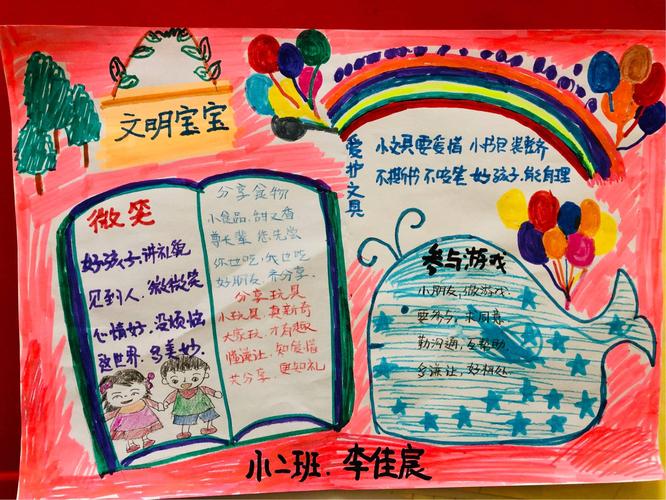 文明宝宝
爱护文具
小文具要爱惜 小书包装整齐
不撕书不咬笔 好孩子.能自理
微笑
好孩子.讲礼貌
见到人.微微笑
心情好.没烦恼
这世界.多美妙.
分享食物
小食品.甜又香
尊长辈 您先尝
你也吃.我也吃
好朋友 齐分享.
分享玩具
小玩具 真新奇
大家玩.才有趣
懂谦让.知爱惜
共分享.更知礼
参与游戏
小朋友,做游戏.
要参与,
勤沟通,互帮助
多谦让,好相处
小二班.李佳宸